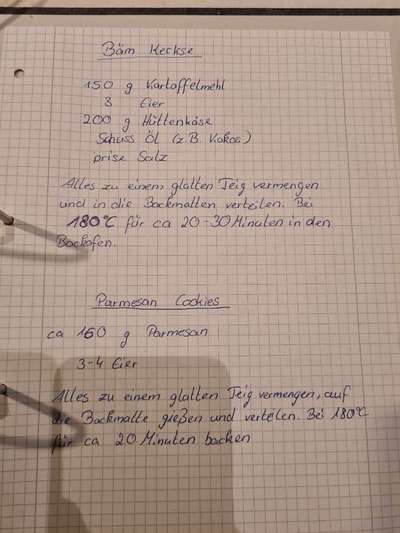 Bäm Keckse
150 g Kartoffelmehl
3 Eier
200 g Hüttenkäse
Schuss Öl (z.B. Kokos)
prise Salz
Alles zu einem glatten Teig vermengen
und in die Backmatten verteilen. Bei
180°C für ca 20-30 Minuten in den
Backofen.
Parmesan Cookies
ca 160 g Parmesan
3-4 Eier
Alles zu einem glatten Teig vermengen, auf
die Backmatte gießen und verteilen. Bei 180°C
für ca 20 Minuten backen